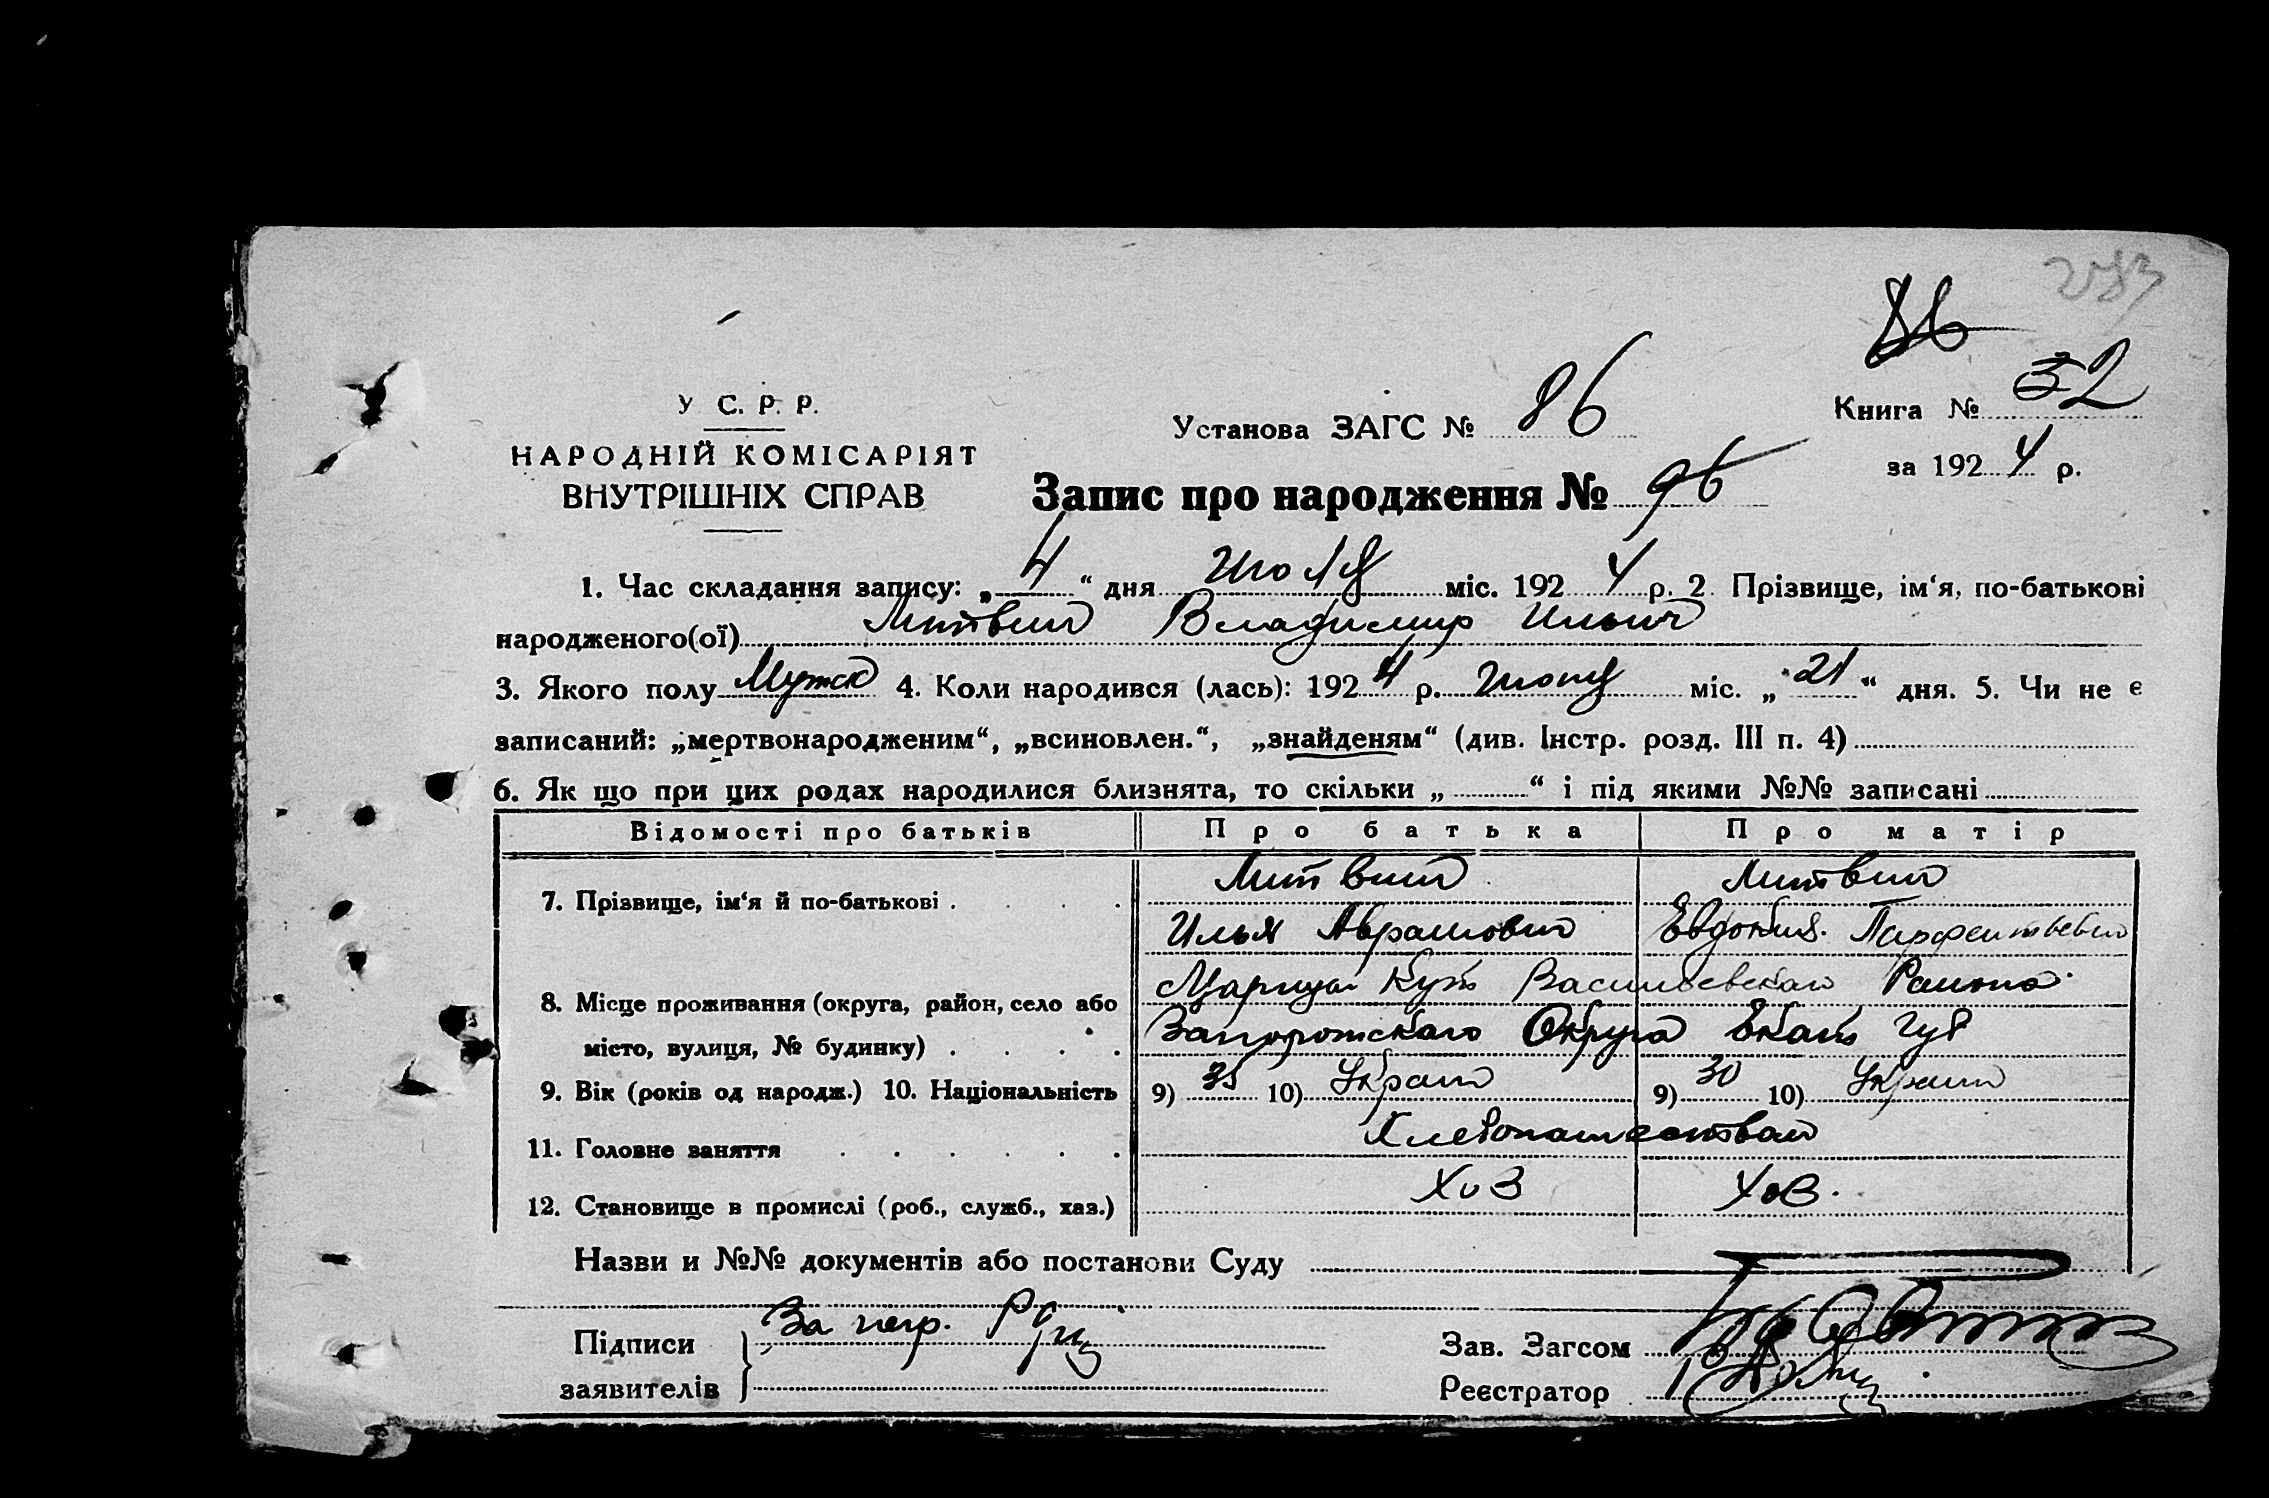 253
86
У. С. Р. Р.
НАРОДНІЙ КОМІСАРІЯТ
ВНУТРІШНІХ СПРАВ
Установа ЗАГС № 86
Книга № 32
за 1924 р.
Запис про народження № 96
1. Час складання запису: „4“ дня Июля міс. 1924 р. 2. Прізвище, ім‘я, по-батькові
народженого(ої) Литвин Владимир Ильич
3. Якого полу Мужск 4. Коли народився (лась): 1924 р. Июня міс. „21“ дня. 5. Чи не є
записаний: „мертвонародженим“, „всиновлен.“, „знайденям“ (див. Інстр. розд. III п. 4)
6. Як що при цих родах народилися близнята, то скільки „ “ і під якими №№ записані
Відомості про батьків Про батька Про матір
7. Прізвище, ім‘я й по-батькові . . . . Литвин Литвин
Илья Аврамович Евдокия Парфентьевна
8. Місце проживання (округа, район, село або Царицын Кут Васильевского Района
місто, вулиця, № будинку) . . . . Запорожскаго Округа Екат Губ
9. Вік (років од народж.) 10. Національність 9) 35 10) Украин 9) 30 10) Украин
11. Головне заняття . . . . . . Хлебопашество
12. Становище в промислі (роб., служб., хаз.) Хоз Хоз.
Назви и №№ документів або постанови Суду
Підписи За негр.
заявителів
Зав. Загсом
Реєстратор